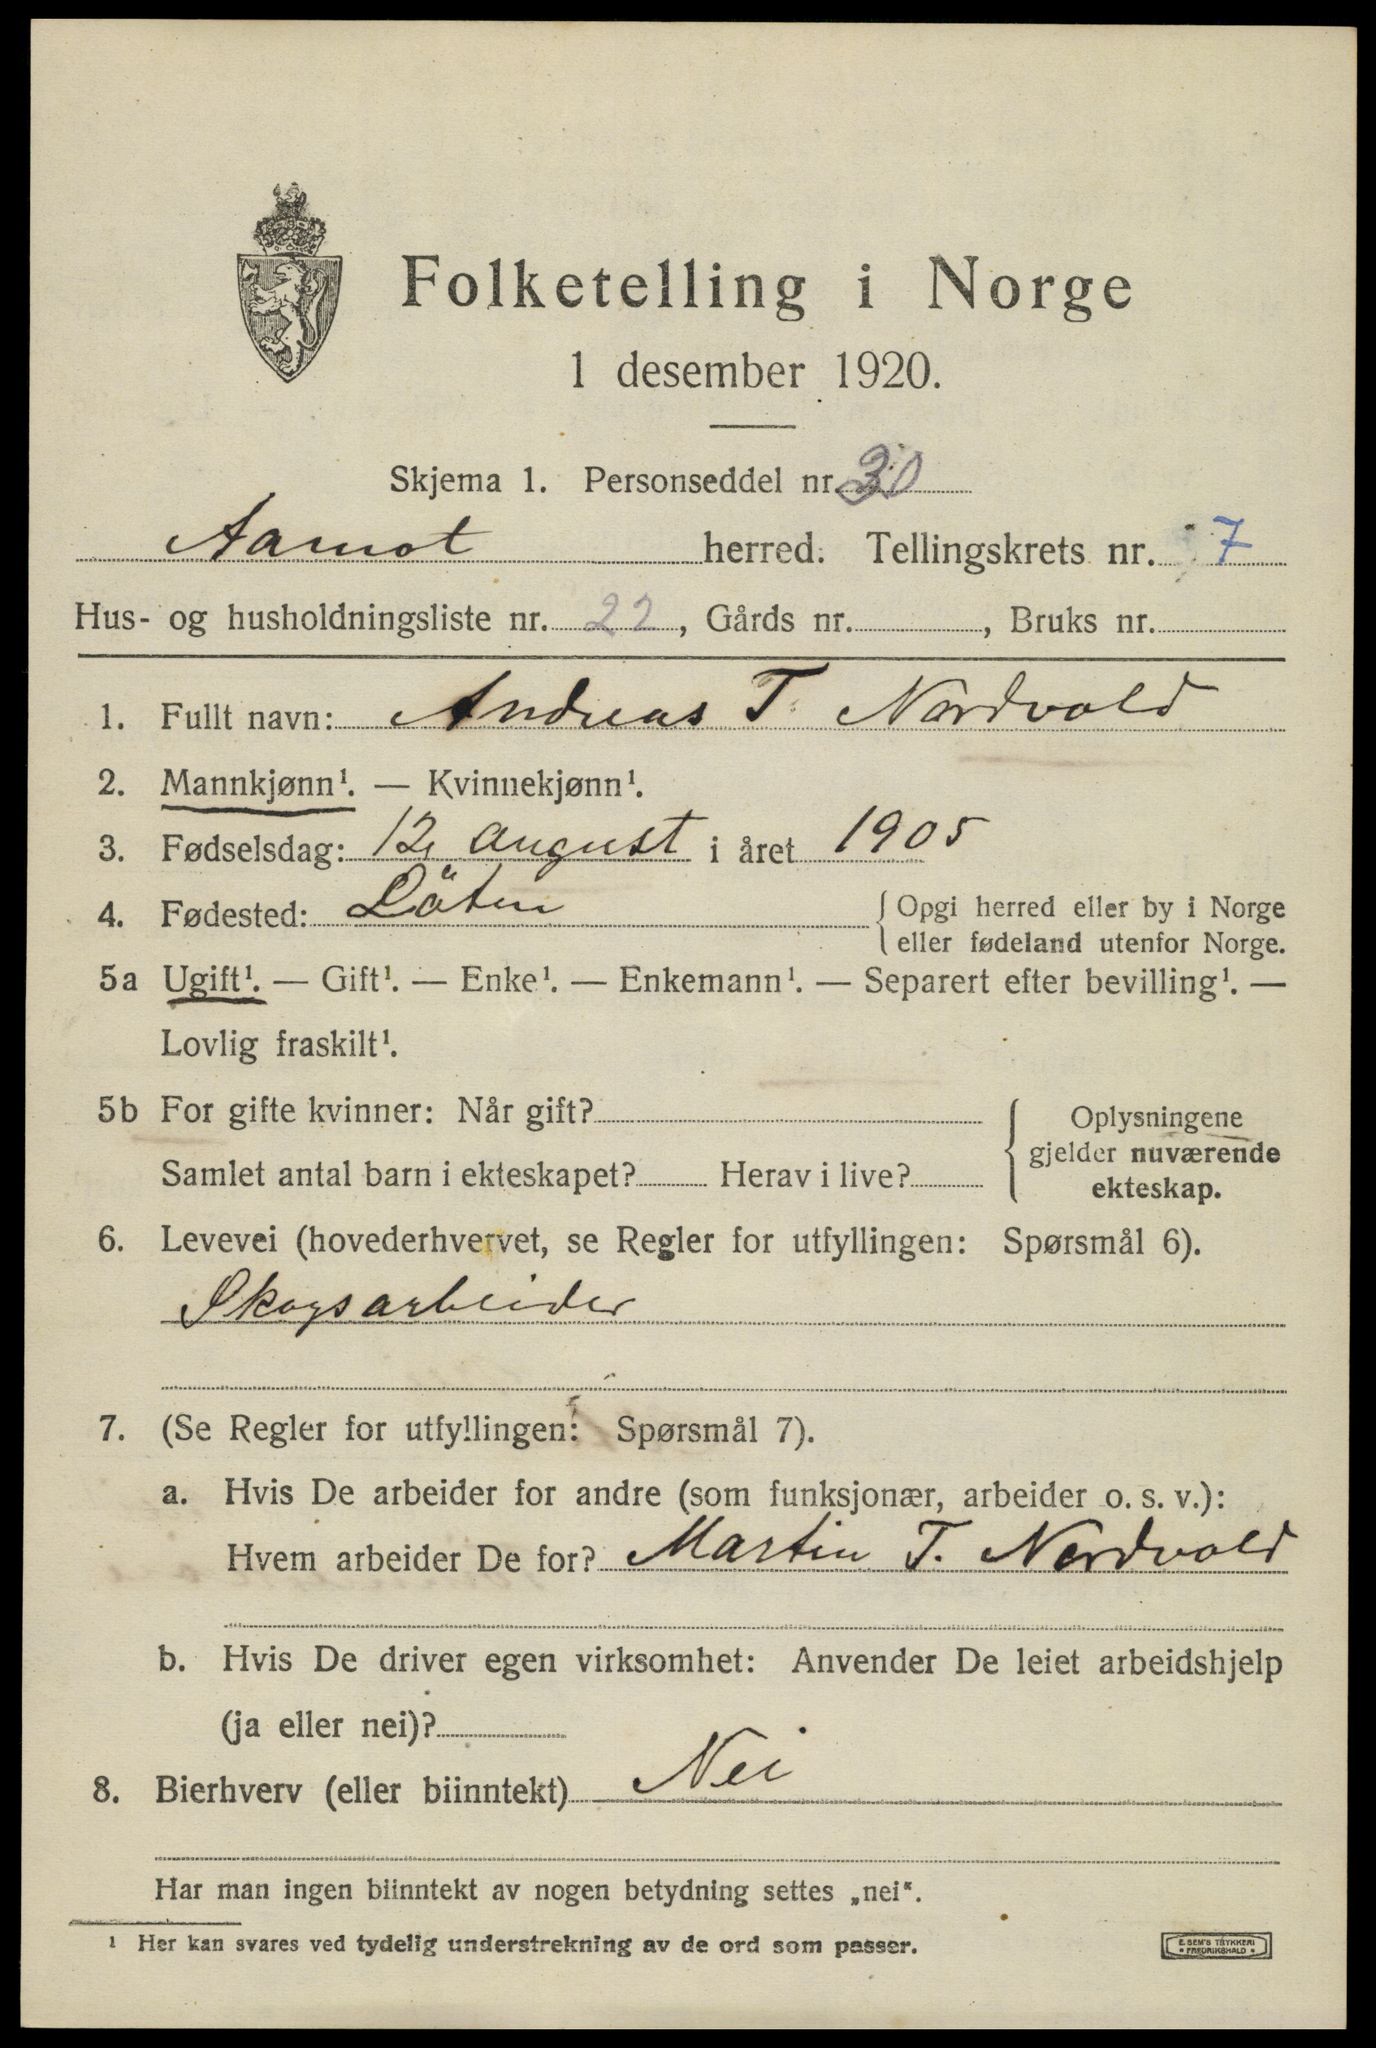 Folketelling i Norge
1 desember 1920.
Skjema 1. Personseddel nr. 30
Aamot herred. Tellingskrets nr. 7
Hus- og husholdningsliste nr. 22, Gårds nr. , Bruks nr.
1. Fullt navn: Andreas T. Nordvold
2. Mannkjønn¹. — Kvinnekjønn¹.
3. Fødselsdag: 12 august i året 1905
4. Fødested: Löten { Opgi herred eller by i Norge
eller fødeland utenfor Norge.
5a Ugift¹. — Gift¹. — Enke¹. — Enkemann¹. — Separert efter bevilling¹. —
Lovlig fraskilt¹.
5b For gifte kvinner: Når gift? { Oplysningene
gjelder nuværende
Samlet antal barn i ekteskapet? Herav i live?
ekteskap.
6. Levevei (hovederhvervet, se Regler for utfyllingen: Spørsmål 6).
Skogsarbeider
7. (Se Regler for utfyllingen: Spørsmål 7).
a. Hvis De arbeider for andre (som funksjonær, arbeider o. s. v.):
Hvem arbeider De for? Martin T. Nordvold
b. Hvis De driver egen virksomhet: Anvender De leiet arbeidshjelp
(ja eller nei)?
8. Bierhverv (eller biinntekt) Nei
Har man ingen biinntekt av nogen betydning settes „nei“.
¹ Her kan svares ved tydelig understrekning av de ord som passer.
E. SEM'S TRYKKERI
FREDRIKSHALD